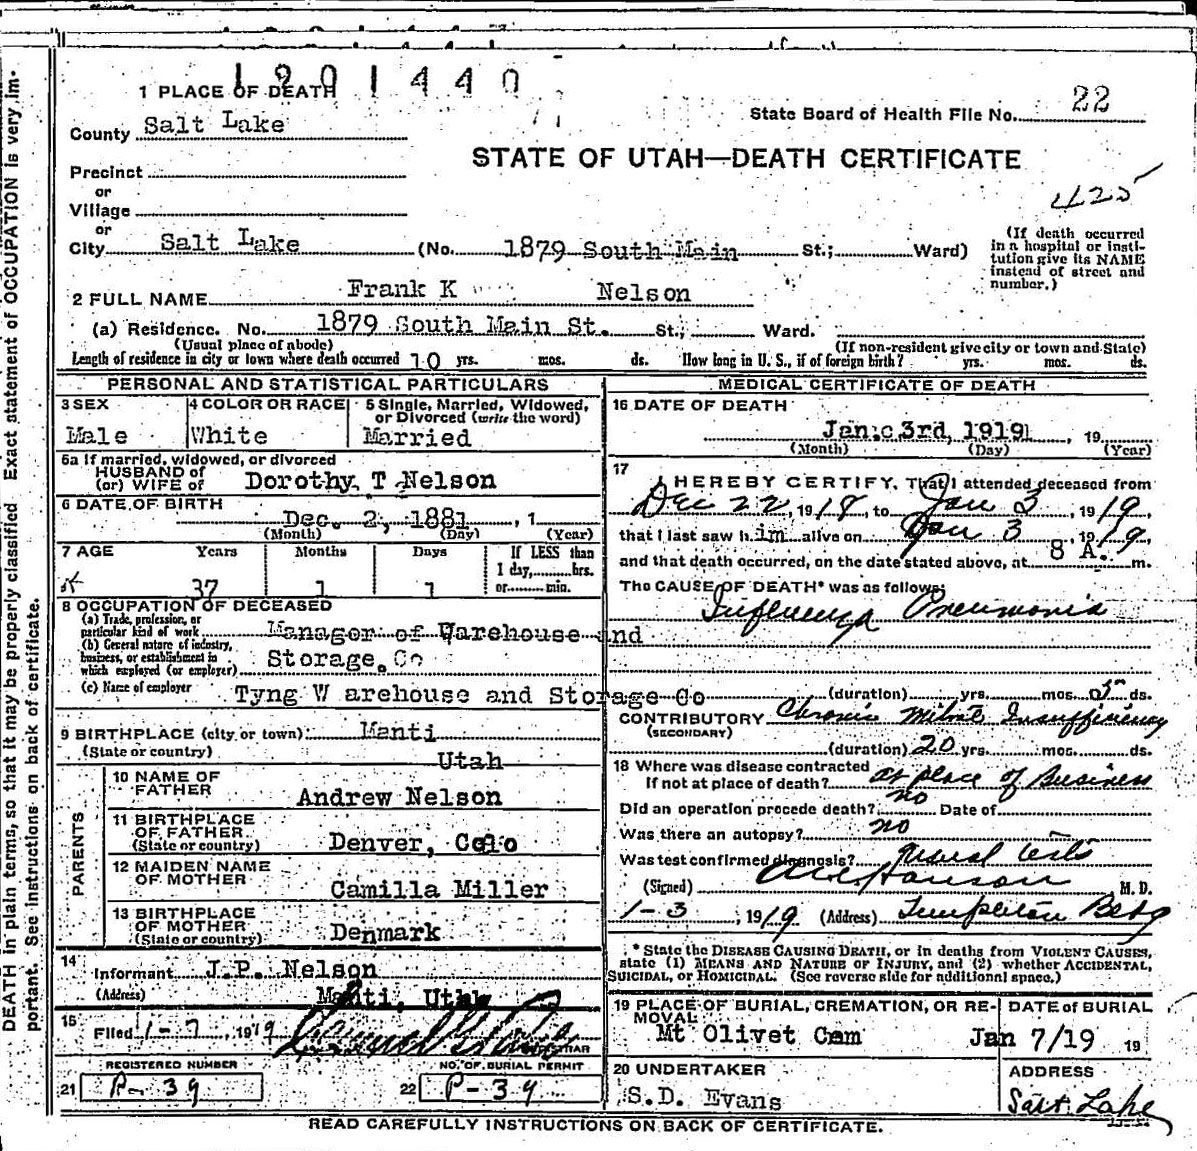 1201440
1 PLACE OF DEATH
State Board of Health File No. 22
County Salt Lake
STATE OF UTAH—DEATH CERTIFICATE
Precinct
or
Village
425
or
City Salt Lake (No. 1879 South Main St.; Ward)
(If death occurred
in a hospital or insti-
tution give its NAME
instead of street and
number.)
2 FULL NAME Frank K Nelson
(a) Residence. No. 1879 South Main St. St.; Ward.
(Usual place of abode) (If non-resident give city or town and State)
Length of residence in city or town where death occurred 10 yrs. mos. ds. How long in U. S., if of foreign birth? yrs. mos. ds.
PERSONAL AND STATISTICAL PARTICULARS
3 SEX
Male
4 COLOR OR RACE
White
5 Single, Married, Widowed,
or Divorced (write the word)
Married
5a If married, widowed, or divorced
HUSBAND of
(or) WIFE of Dorothy T Nelson
6 DATE OF BIRTH
Dec. 2, 1881, 1
(Month) (Day) (Year)
7 AGE Years Months Days If LESS than
1 day,......hrs.
or......min.
37 1 1
8 OCCUPATION OF DECEASED
(a) Trade, profession, or
particular kind of work Manager of Warehouse and
(b) General nature of industry,
business, or establishment in
which employed (or employer) Storage Co
(c) Name of employer Tyng W arehouse and Storage Co
9 BIRTHPLACE (city or town) Manti
(State or country) Utah
PARENTS
10 NAME OF
FATHER Andrew Nelson
11 BIRTHPLACE
OF FATHER
(State or country) Denver, Colo
12 MAIDEN NAME
OF MOTHER Camilla Miller
13 BIRTHPLACE
OF MOTHER
(State or country) Denmark
14
Informant J.P. Nelson
(Address) Manti, Utah
15
Filed 1-7, 1919
REGISTRAR
REGISTERED NUMBER NO. OF BURIAL PERMIT
21 P-39 22 P-39
MEDICAL CERTIFICATE OF DEATH
16 DATE OF DEATH
Jan. 3rd, 1919, 19
(Month) (Day) (Year)
17
I HEREBY CERTIFY, That I attended deceased from
Dec 22, 1918, to Jan 3, 1919,
that I last saw him alive on Jan 3, 1919,
and that death occurred, on the date stated above, at 8 A. m.
The CAUSE OF DEATH* was as follows:
Influenza Pneumonia
(duration) yrs. mos. 5 ds.
CONTRIBUTORY Chronic Mitral Insufficiency
(SECONDARY)
(duration) 20 yrs. mos. ds.
18 Where was disease contracted
If not at place of death? at place of Business
Did an operation precede death? no Date of
Was there an autopsy? no
Was test confirmed diagnosis? usual tests
(Signed) Hanson M. D.
1-3, 1919 (Address) Templeton Bldg
* State the DISEASE CAUSING DEATH, or in deaths from VIOLENT CAUSES,
state (1) MEANS AND NATURE OF INJURY, and (2) whether ACCIDENTAL,
SUICIDAL, or HOMICIDAL. (See reverse side for additional space.)
19 PLACE OF BURIAL, CREMATION, OR RE-
MOVAL
Mt Olivet Cem
DATE of BURIAL
Jan 7/19 19
20 UNDERTAKER
S.D. Evans
ADDRESS
Salt Lake
READ CAREFULLY INSTRUCTIONS ON BACK OF CERTIFICATE.
DEATH in plain terms, so that it may be properly classified. Exact statement of OCCUPATION is very im-
portant. See instructions on back of certificate.